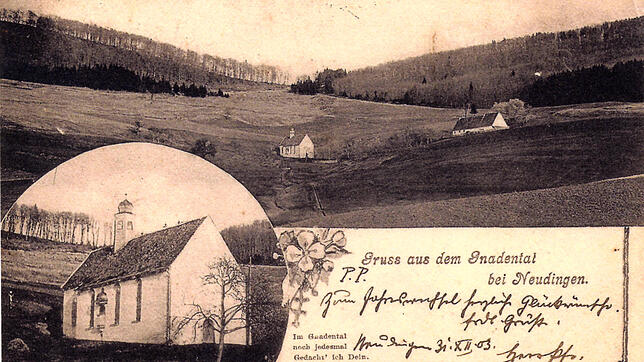 Gruss aus dem Gnadental
bei Neudingen.
P.P.
Zum Jahreswechsel herzlich Glückwünsche
Neudingen 31.XII 03.
Im Gnadental
noch jedesmal
Gedacht' ich Dein.